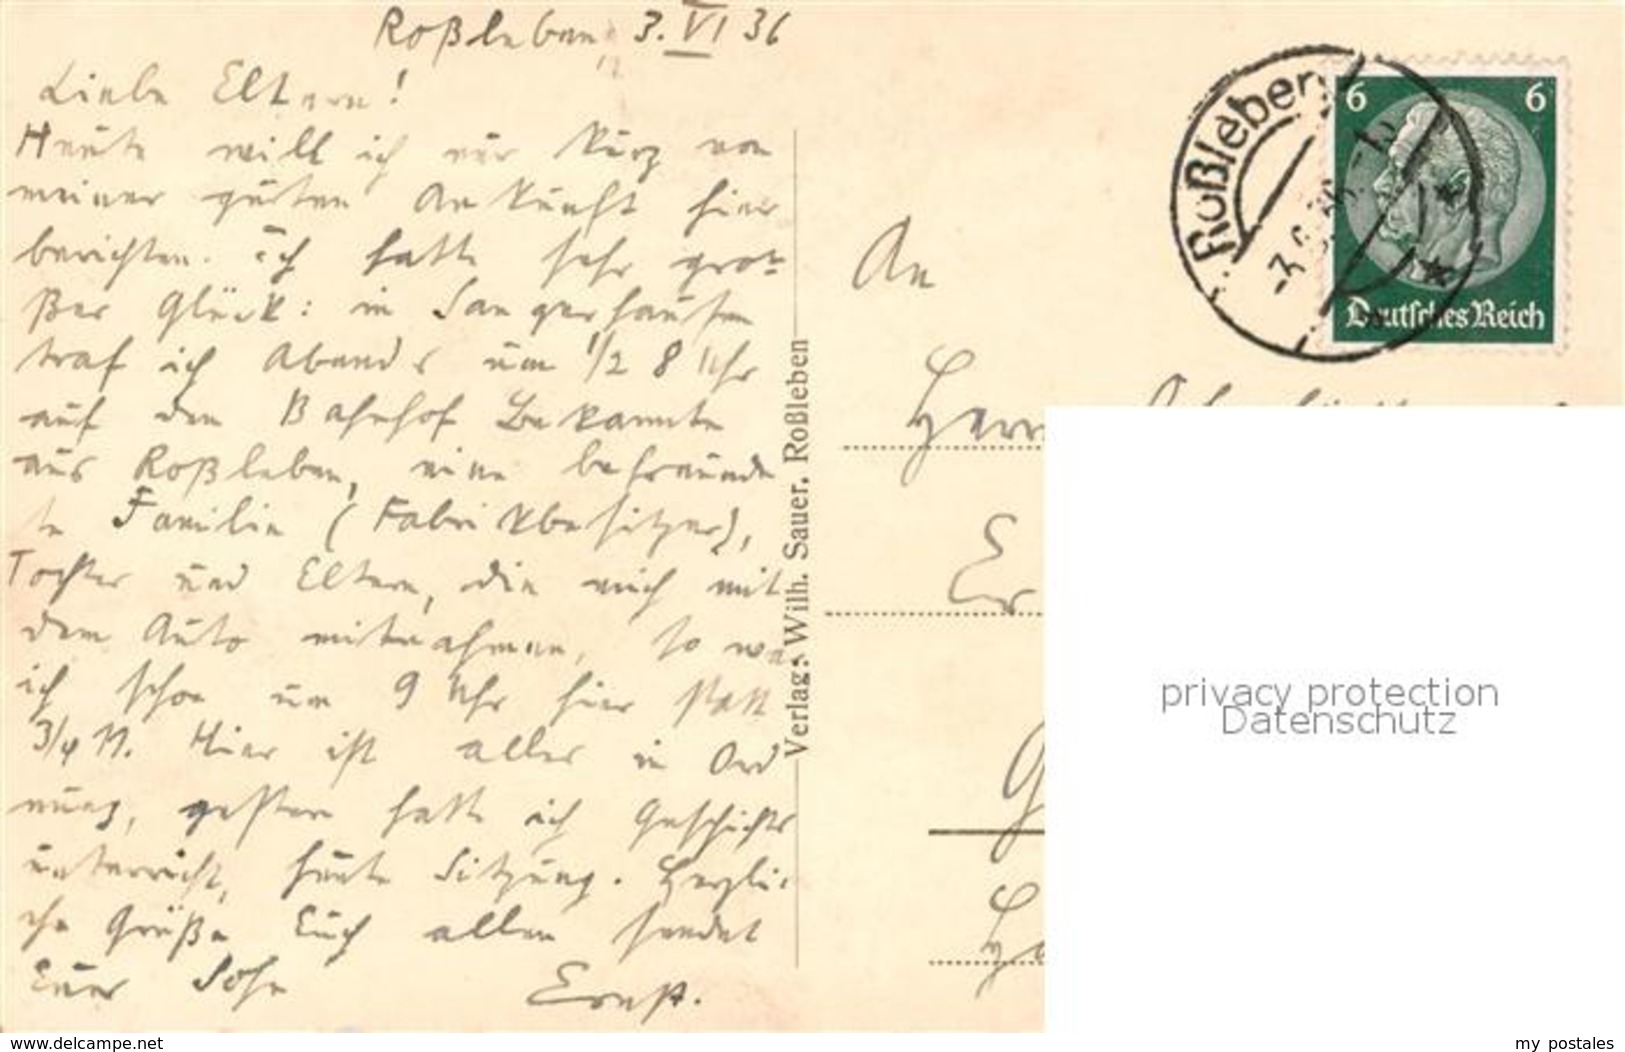 Roßleben, 3. VI 36
Liebe Eltern!
Heute will ich nur kurz von
meiner guten Ankunft hier
berichten. Ich hatte sehr gro-
ßes Glück: in Sangerhausen
traf ich Abends um 1/2 8 Uhr
auf dem Bahnhof Bekannte
aus Roßleben, eine befreunde
te Familie (Fabrikbesitzer),
Tochter und Eltern, die mich mit
dem Auto mitnahmen, so war
ich schon um 9 Uhr hier statt
3/4 11. Hier ist alles in Ord
nung, gestern hatte ich Geschichts
unterricht, heute Sitzung. Herzli-
che Grüße Euch allen sendet
Euer Sohn Ernst.
Verlag: Wilh. Sauer, Roßleben
Roßleben
6 6
Deutsches Reich
An
Herrn
privacy protection
Datenschutz
www.delcampe.net
my_postales